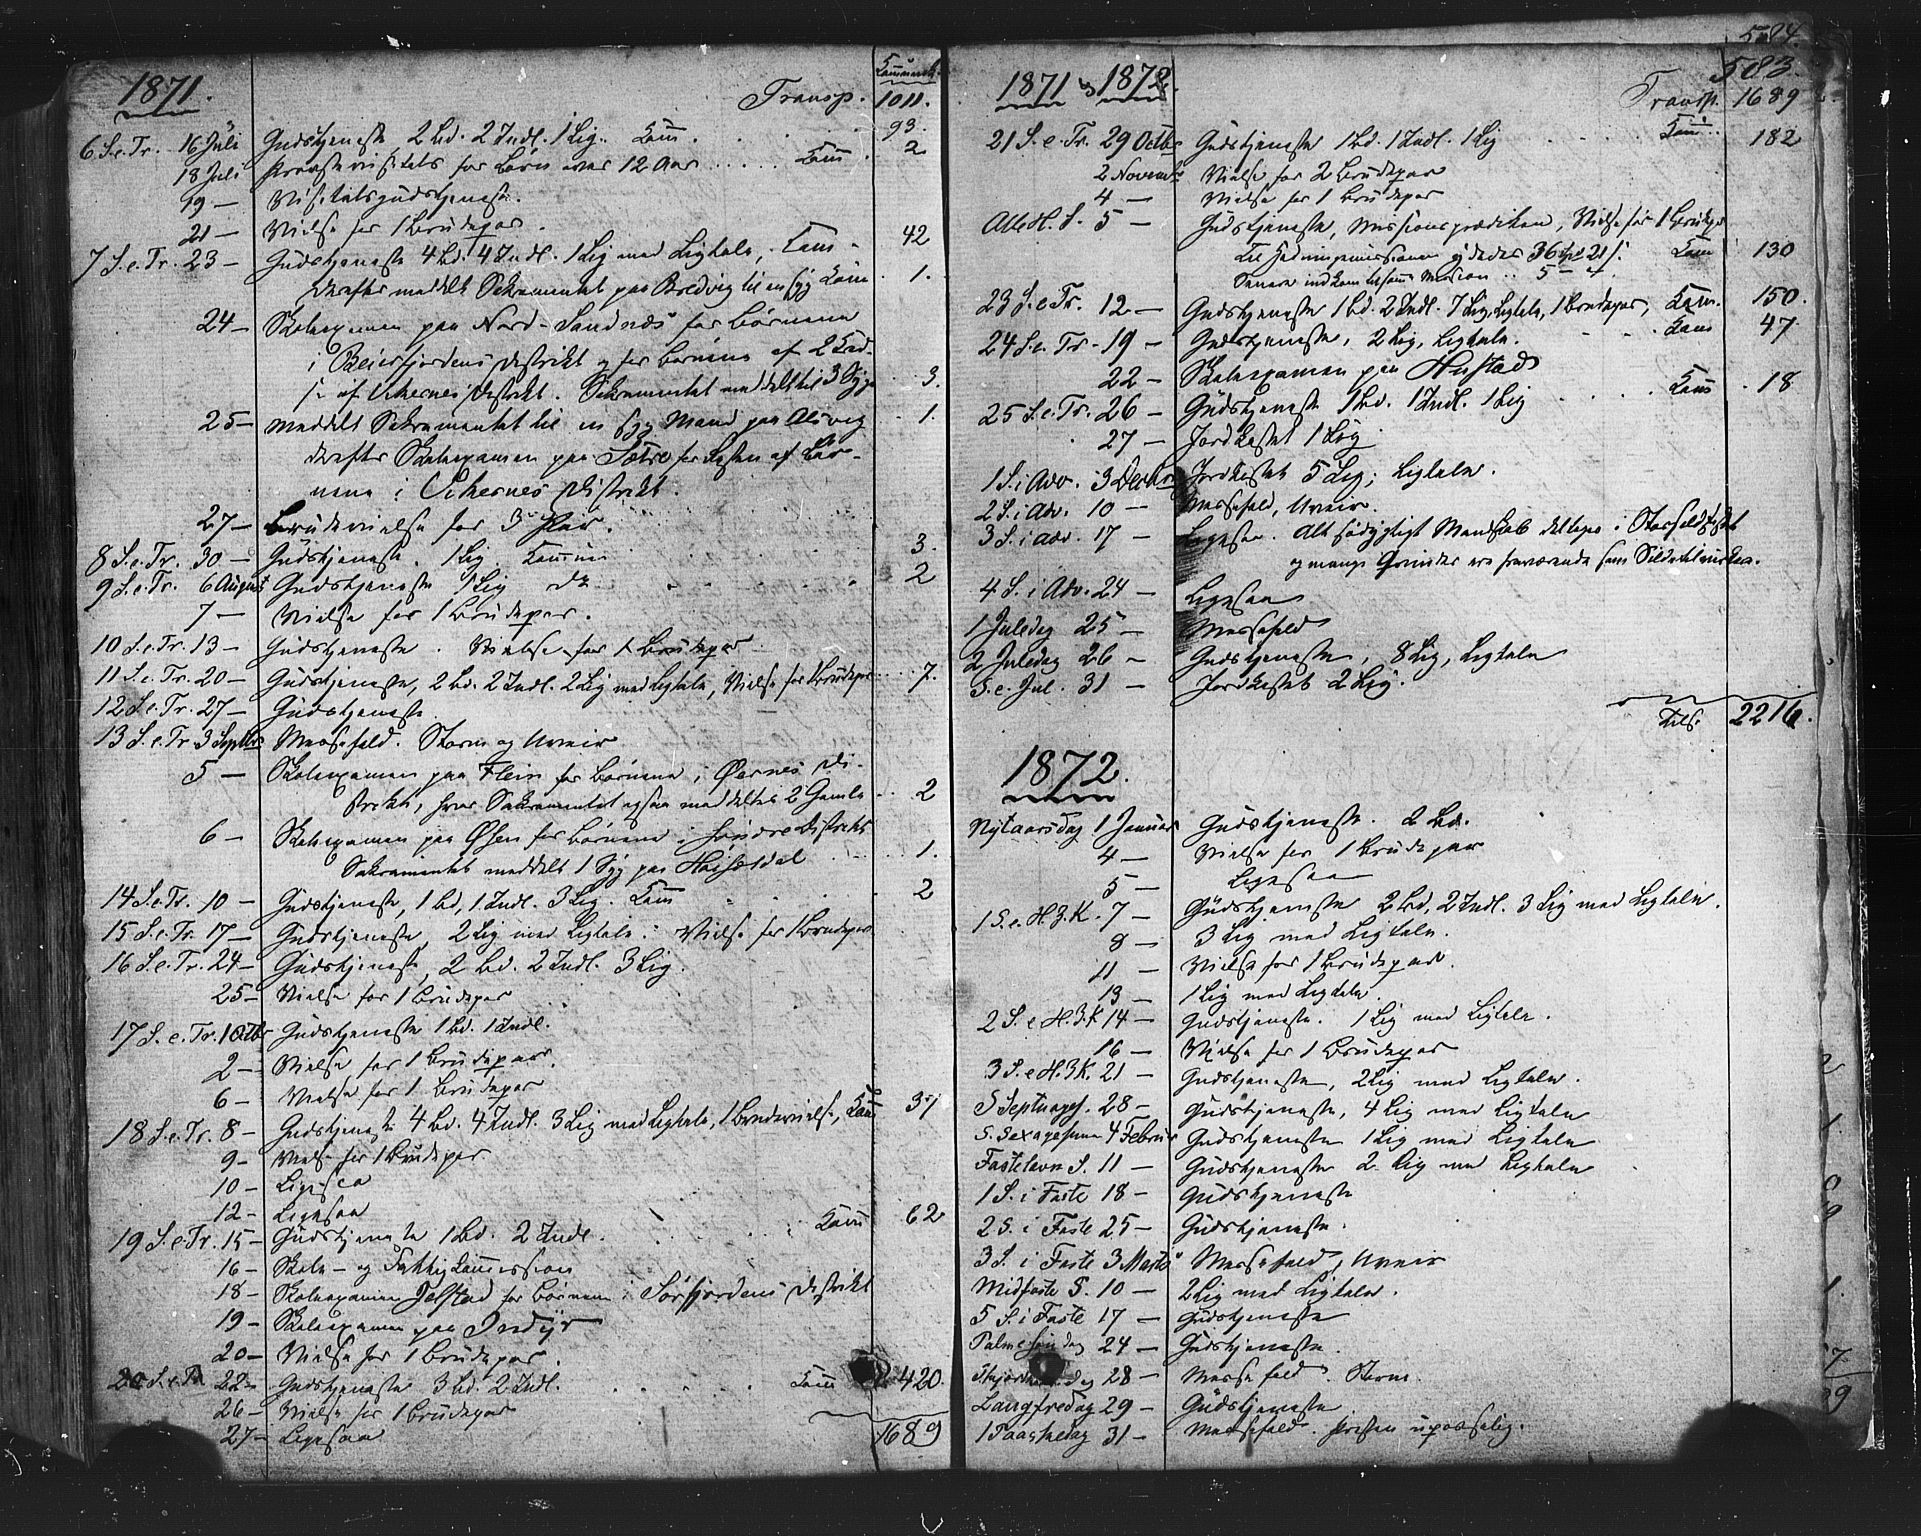 1871.
Communic.
Transp. 1011.
6. S. e. Tr. 16 Juli Gudstjeneste, 2 Bd. 2 Indl. 1 Lig. Com. 93.
18 Juli Provstevisitats for Børn over 12 Aar Com 2
19 — Visitatsgudstjeneste.
21 — Vielse for 1 Brudepar.
7 S. e. Tr. 23 — Gudstjeneste 4 Bd. 4 Indl. 1 Lig med Ligtale, Com. 42
derefter meddelt Sakramentet paa Bredvig til en Syg Com 1.
24 — Skoleexamen paa Nord-Sandnæs for Børnene
i Beierfjordens Distrikt og for Børnene af 2
af Distrikt. Sakramentet meddelt til 3 Syge 3.
25 — meddelt Sakramentet til en syg Mand paa Alsvig 1.
derefter Skoleexamen paa Sætre for Resten af Bør-
nene i Distrikt.
27 — Brudevielse for 3 Par.
8 S. e. Tr. 30 — Gudstjeneste. 1 Lig Commun 3.
9 S. e. Tr. 6 August Gudstjeneste 1 Lig do 2
7 — Vielse for 1 Brudepar.
10 S. e. Tr. 13 — Gudstjeneste. Vielse for 1 Brudepar
11 S. e. Tr. 20 — Gudstjeneste, 2 Bd. 2 Indl. 2 Lig med Ligtale, Vielse for 1 Brudepar 7.
12 S. e. Tr. 27 — Gudstjeneste
13 S. e. Tr. 3 Septbr Messefald. Storm og Uveir
5 — Skoleexamen paa Flein for Børnene i Ørnes Di-
strikt, hvor Sakramentet ogsaa meddeltes 2 Gamle 2
6 — Skoleexamen paa Øsen for Børnene i Søndre Distrikt
Sakramentet meddelt 1 Syg paa 1.
14 S. e. Tr. 10 — Gudstjeneste, 1 Bd, 1 Indl. 3 Lig. Com 2
15 S. e. Tr. 17 — Gudstjeneste, 2 Lig med Ligtale. Vielse for 1 Brudepar
16 S. e. Tr. 24 — Gudstjeneste, 2 Bd. 2 Indl. 3 Lig.
25 — Vielse for 1 Brudepar
17 S. e. Tr. 1 Octbr Gudstjeneste 1 Bd. 1 Indl.
2 — Vielse for 1 Brudepar.
6 — Vielse for 1 Brudepar
18 S. e. Tr. 8 — Gudstjeneste 4 Bd. 4 Indl. 3 Lig med Ligtale, 1 Brudevielse, Com 37
9 — Vielse for 1 Brudepar
10 — Ligesaa
12 — Ligesaa
19 S. e. Tr. 15 — Gudstjeneste 1 Bd. 2 Indl. Com 62
16 — Skole- og Fattigcommission
18 — Skoleexamen Jelstad for Børnene i Sørfjordens Distrikt
19 — Skoleexamen paa Indyr
20 — Vielse for 1 Brudepar.
20 S. e. Tr 22 — Gudstjeneste 3 Bd. 2 Indl. Com 420.
26 — Vielse for 1 Brudepar
27 — Ligesaa
1689
584.
583.
1871 og 1872.
Transp. 1689
21 S. e. Tr. 29 Octbr Gudstjeneste 1 Bd. 1 Indl. 1 Lig Com. 182
2 Novembr Vielse for 2 Brudepar
4 — Vielse for 1 Brudepar
Alle H. S. 5 — Gudstjeneste, Missionsprædiken, Vielse for 1 Brudepar
Til Hedningemissionen ydedes 36 Spd 21 s. Com 130
Senere indkom 5
23 S. e. Tr. 12 — Gudstjeneste 1 Bd. 2 Indl. 7 Lig, Ligtale, 1 Brudepar, Com. 150.
24 S. e. Tr. 19 — Gudstjeneste, 2 Lig, Ligtale. Com 47.
22 — Skoleexamen paa Hustad
25 S. e. Tr. 26 — Gudstjeneste 1 Bd. 1 Indl. 1 Lig Com 18
27 — Jordkastet 1 Lig
1 S. i Adv. 3 Decbr Jordkastet 5 Lig; Ligtale.
2 S. i Adv. 10 — Messefald, Uveir.
3 S. i Adv. 17 — Ligesaa. Alt sødygtigt Mandskab deltage i Storsildfisket
og mange Qvinder ere fraværende som
4 S. i Adv. 24 — Ligesaa
1 Juledag 25 — Messefald
2 Juledag 26 — Gudstjeneste, 8 Lig, Ligtale
S. e. Jul. 31 — Jordkastet 2 Lig.
Tils. 2216.
1872.
Nytaarsdag 1 Januar Gudstjeneste. 2 Bd.
4 — Vielse for 1 Brudepar
5 — Ligesaa
1 S. e. H. 3. K. 7 — Gudstjeneste 2 Bd, 2 Indl. 3 Lig med Ligtale.
8 — 3 Lig med Ligtale.
11 — Vielse for 1 Brudepar.
13 — 1 Lig med Ligtale.
2 S. e. H. 3. K 14 — Gudstjeneste. 1 Lig med Ligtale.
16 — Vielse for 1 Brudepar
3 S. e. H. 3 K. 21 — Gudstjeneste, 2 Lig med Ligtale.
S Septuages. 28 — Gudstjeneste, 4 Lig med Ligtale
S. Sexagesima 4 Februar Gudstjeneste 1 Lig med Ligtale
Fastelavn S. 11 — Gudstjeneste 2 Lig med Ligtale
1 S. i Faste 18 — Gudstjeneste
2 S. i Faste 25 — Gudstjeneste.
3 S. i Faste 3 Marts Messefald, Uveir
Midfaste S. 10 — 2 Lig med Ligtale.
5 S. i Faste 17 — Gudstjeneste
Palmesøndag 24 — Gudstjeneste.
Skjærtorsdag 28 — Messefald Storm
Langfredag 29 — Gudstjeneste
1 Paaskedag 31 — Messefald. Præsten upasselig.